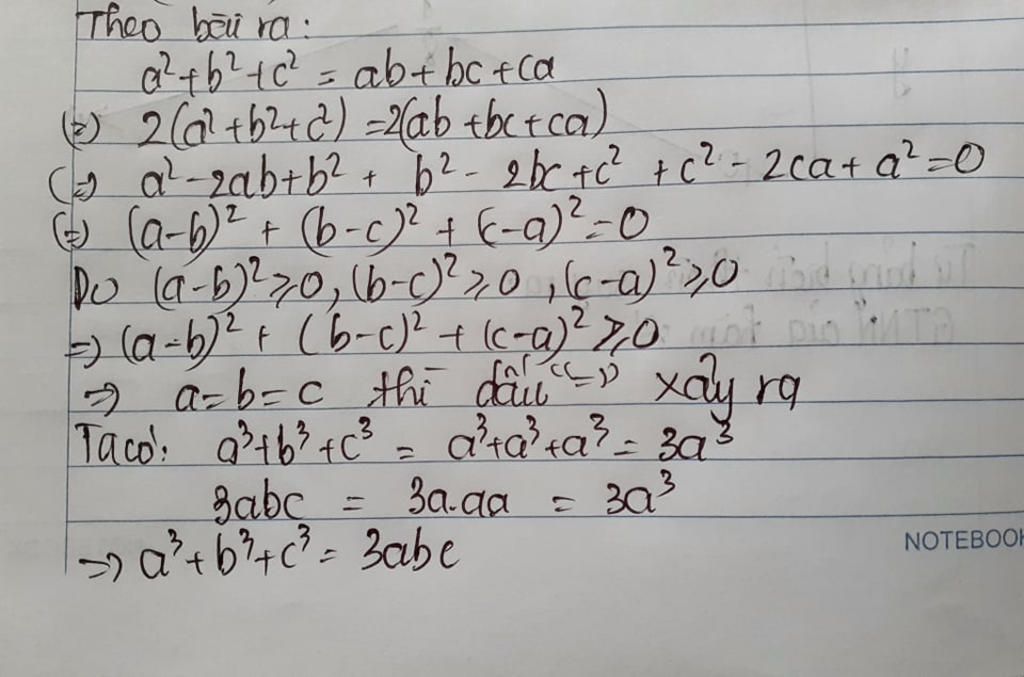 Theo bài ra:
a²+b²+c² = ab+bc+ca
(=) 2(a²+b²+c²) =2(ab+bc+ca)
(=) a²-2ab+b² + b²-2bc+c² +c²-2ca+a²=0
(=) (a-b)² + (b-c)² + (c-a)²=0
Do (a-b)²≥0, (b-c)²≥0, (c-a)²≥0
=) (a-b)² + (b-c)² + (c-a)² ≥0
=) a=b=c thì dấu "=" xảy ra
Ta có: a³+b³+c³ = a³+a³+a³ = 3a³
3abc = 3a.aa = 3a³
=) a³+b³+c³ = 3abc
NOTEBOOK